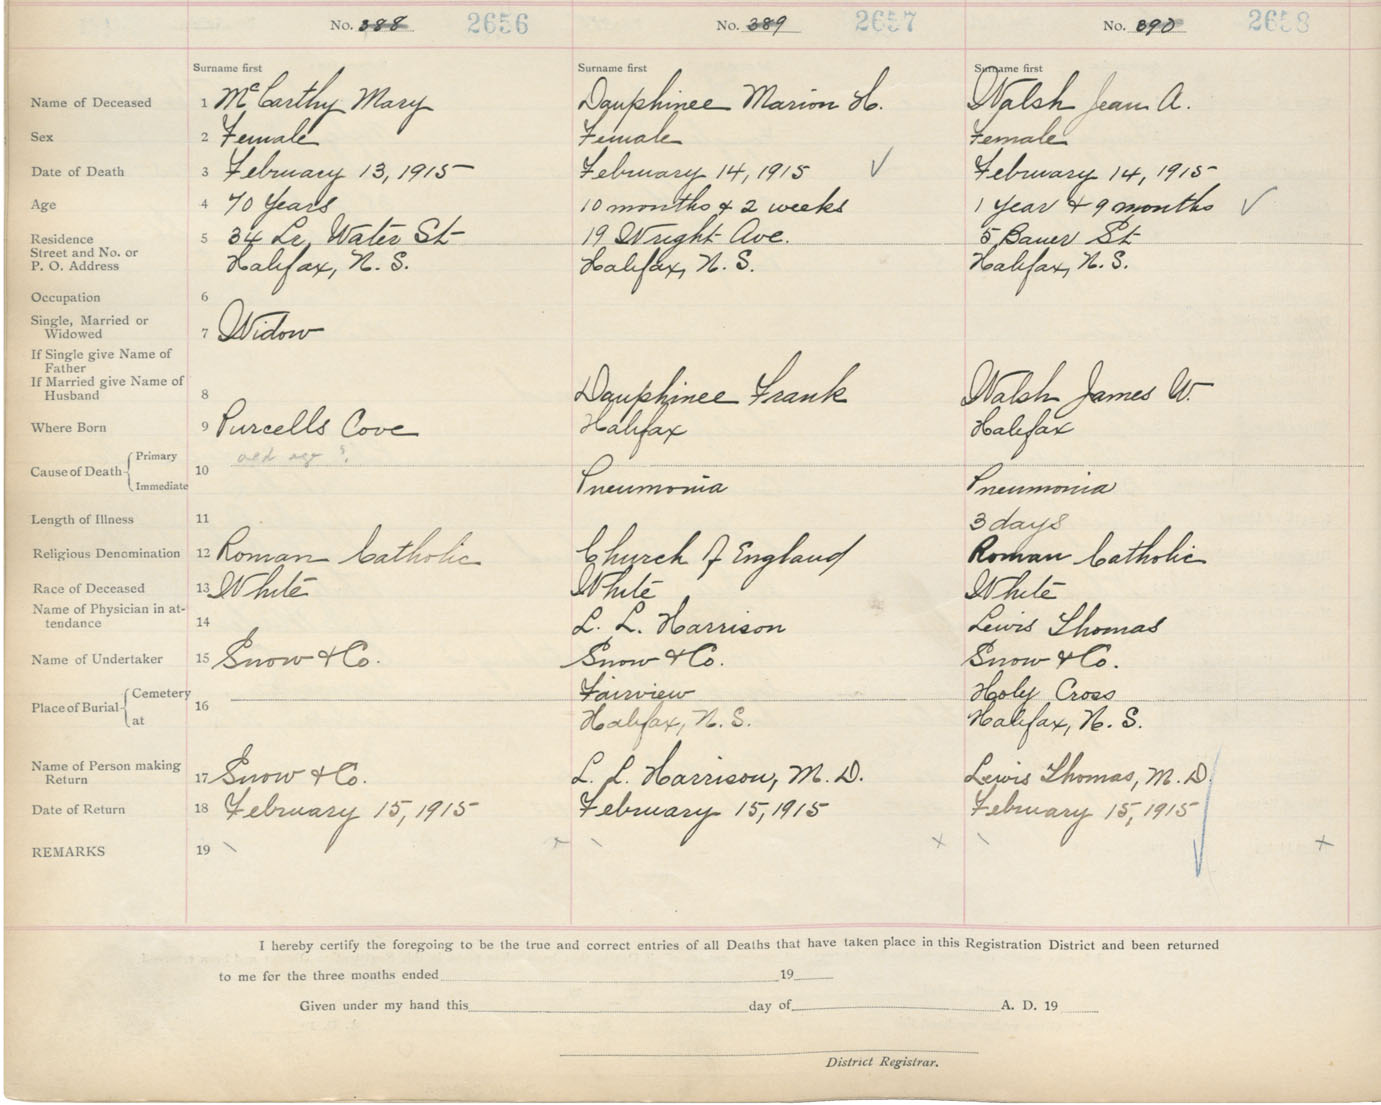 No. 388 2656 No. 389 2657 No. 390 2658
Surname first Surname first Surname first
Name of Deceased 1 McCarthy Mary Dauphinee Marion H. Walsh Jean A.
Sex 2 Female Female Female
Date of Death 3 February 13, 1915 February 14, 1915 ✓ February 14, 1915
Age 4 70 Years 10 months & 2 weeks 1 Year & 9 months ✓
Residence 5 34 Lr. Water St 19 Wright Ave. 5 Bauer St
Street and No. or
P. O. Address Halifax, N. S. Halifax, N. S. Halifax, N. S.
Occupation 6
Single, Married or
Widowed 7 Widow
If Single give Name of
Father
If Married give Name of
Husband 8 Dauphinee Frank Walsh James W.
Where Born 9 Purcells Cove Halifax Halifax
Cause of Death Primary old age ?
10
Immediate Pneumonia Pneumonia
Length of Illness 11 3 days
Religious Denomination 12 Roman Catholic Church of England Roman Catholic
Race of Deceased 13 White White White
Name of Physician in at-
tendance 14 L. L. Harrison Lewis Thomas
Name of Undertaker 15 Snow & Co. Snow & Co. Snow & Co.
Place of Burial Cemetery 16 Fairview Holy Cross
at Halifax, N. S. Halifax, N. S.
Name of Person making
Return 17 Snow & Co. L. L. Harrison, M. D. Lewis Thomas, M. D.
Date of Return 18 February 15, 1915 February 15, 1915 February 15, 1915
REMARKS 19
I hereby certify the foregoing to be the true and correct entries of all Deaths that have taken place in this Registration District and been returned
to me for the three months ended 19
Given under my hand this day of A. D. 19
District Registrar.